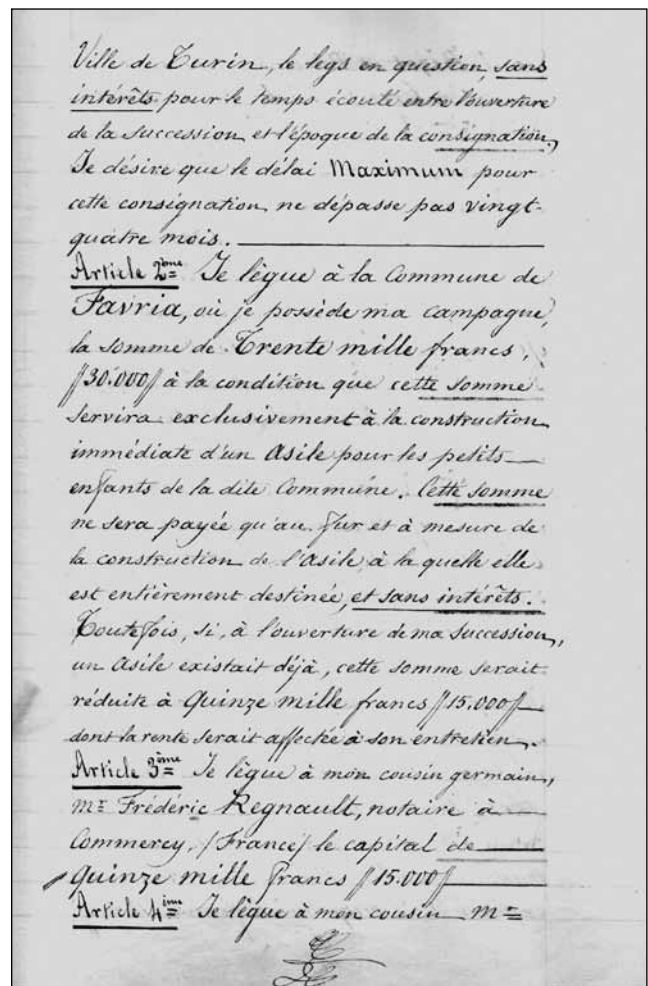 Ville de Turin, le legs en question, sans
intérêts pour le temps écoulé entre l'ouverture
de la succession et l'époque de la consignation,
Je désire que le délai Maximum pour
cette consignation ne dépasse pas vingt-
quatre mois.
Article 2ème Je lègue à la Commune de
Favria, où je possède ma campagne,
la somme de Trente mille francs,
//30.000// à la condition que cette somme
servira exclusivement à la construction
immédiate d'un Asile pour les petits
enfants de la dite Commune. Cette somme
ne sera payée qu'au fur et à mesure de
la construction de l'Asile à la quelle elle
est entièrement destinée, et sans intérêts.
Toutefois, si, à l'ouverture de ma succession,
un Asile existait déjà, cette somme serait
réduite à Quinze mille francs //15.000//
dont la rente serait affectée à son entretien.
Article 3ème Je lègue à mon cousin germain,
Mr Frédéric Regnault, notaire à
Commercy, /France/ le capital de
Quinze mille francs //15.000//
Article 4ème Je lègue à mon cousin Mr